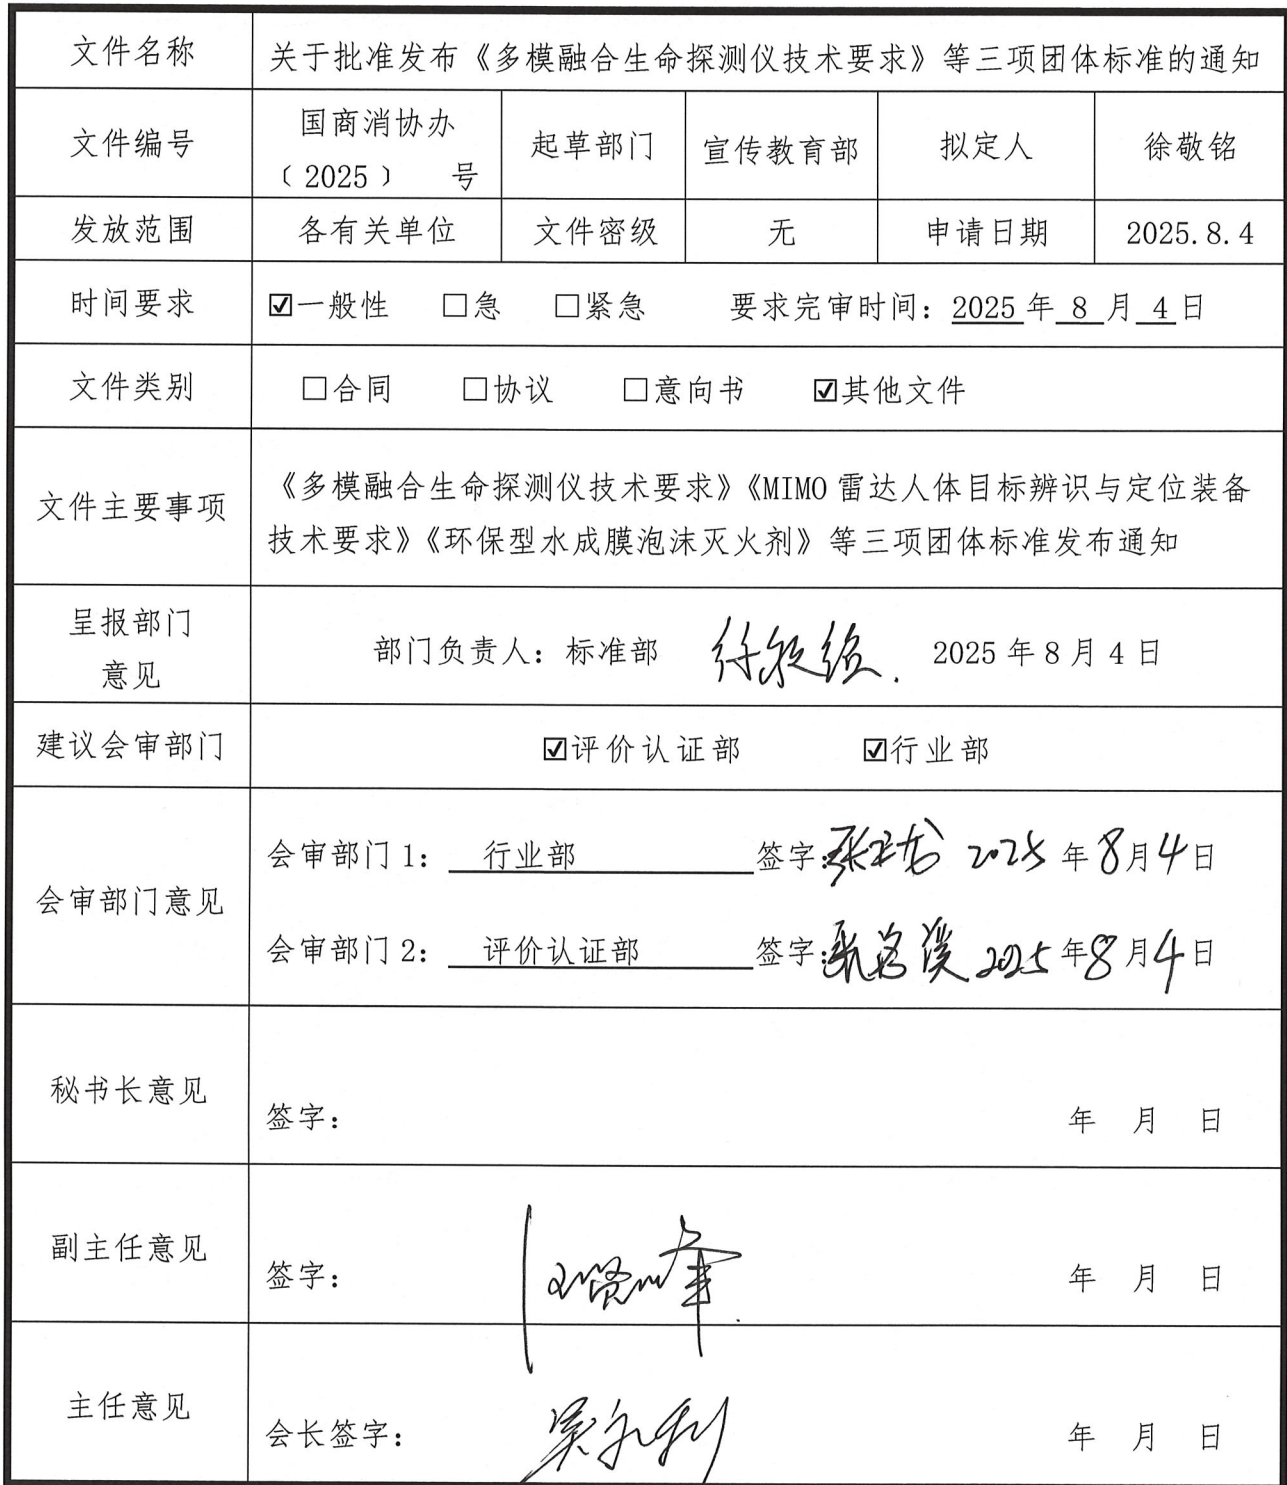 文件名称 关于批准发布《多模融合生命探测仪技术要求》等三项团体标准的通知
文件编号 国商消协办
﹝2025﹞ 号 起草部门 宣传教育部 拟定人 徐敬铭
发放范围 各有关单位 文件密级 无 申请日期 2025.8.4
时间要求 ☑一般性 □急 □紧急 要求完审时间：2025年 8 月 4 日
文件类别 □合同 □协议 □意向书 ☑其他文件
文件主要事项 《多模融合生命探测仪技术要求》《MIMO雷达人体目标辨识与定位装备
技术要求》《环保型水成膜泡沫灭火剂》等三项团体标准发布通知
呈报部门
意见 部门负责人：标准部 2025年8月4日
建议会审部门 ☑评价认证部 ☑行业部
会审部门意见
会审部门1： 行业部 签字： 2025年8月4日
会审部门2： 评价认证部 签字： 2025年8月4日
秘书长意见 签字： 年 月 日
副主任意见 签字： 年 月 日
主任意见 会长签字： 年 月 日